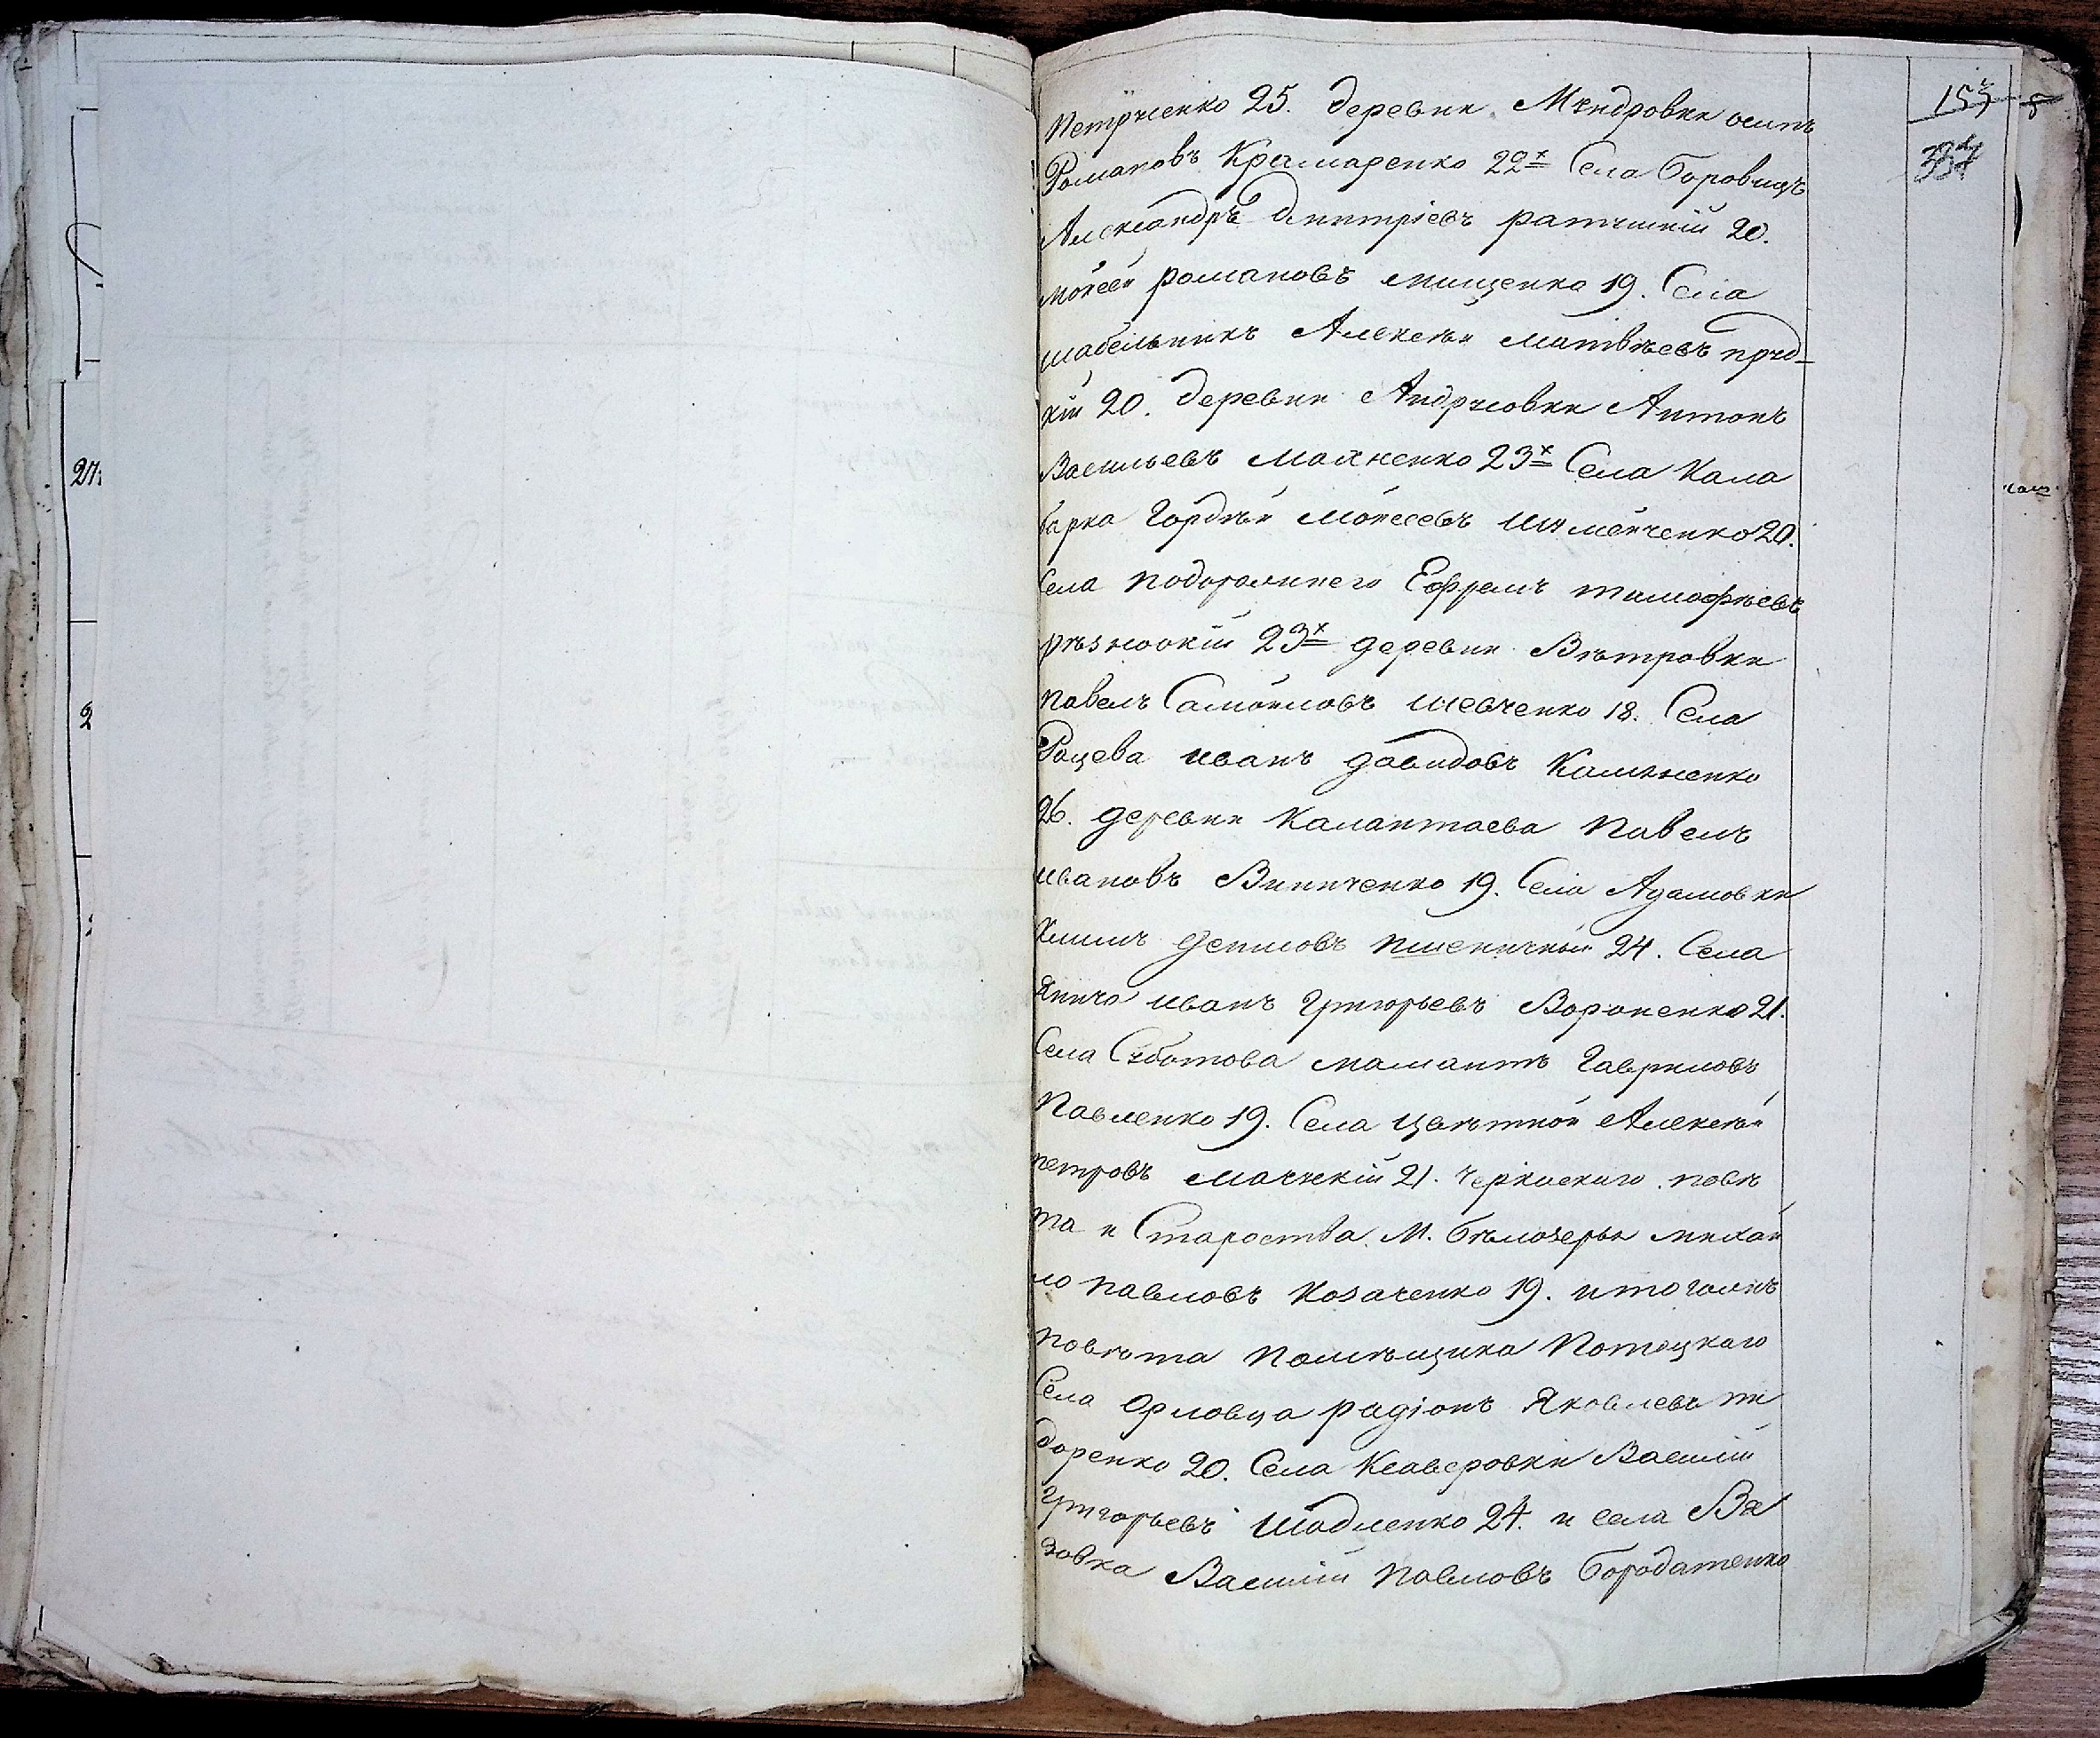 Петрусенко 25. деревни Мудровки осипъ
Романовъ Крамаренко 22х Села Боровицъ
Александръ дмитріевъ ратушній 20.
мойсеи романовъ мищенко 19. Села
шабельникъ Алексѣи матвѣевъ пруд-
кіи 20. деревни Андрусовки Антонъ
Васильевъ Махненко 23х Села Кала
барка Гордѣй мойсеевъ 20.
Села подорожнего Ефремъ тимофѣевъ
23х деревни Вѣтровки
павелъ Самойловъ шевченко 18. Села
Рацева иванъ давидовъ
26. деревни Калантаева павелъ
ивановъ Винниченко 19. Села Адамовки
Климъ денисовъ пшеничный 24. Села
янича иванъ Григорьевъ Вороненко 21.
Села Суботова мамантъ Гавриловъ
Павленко 19. Села цвѣтной Алексѣй
петровъ 21. Черкаскаго повѣ
та и Староства М. бѣлозерья михай
ло павловъ Козаченко 19. и того жъ
повѣта помѣщика Потоцкаго
Села Орловца радіонъ Яковлевъ ти
доренко 20. Села Ксаверовки Василій
Григорьевъ 24. и села Вя
зовка Василій павловъ бородатенко
27
2